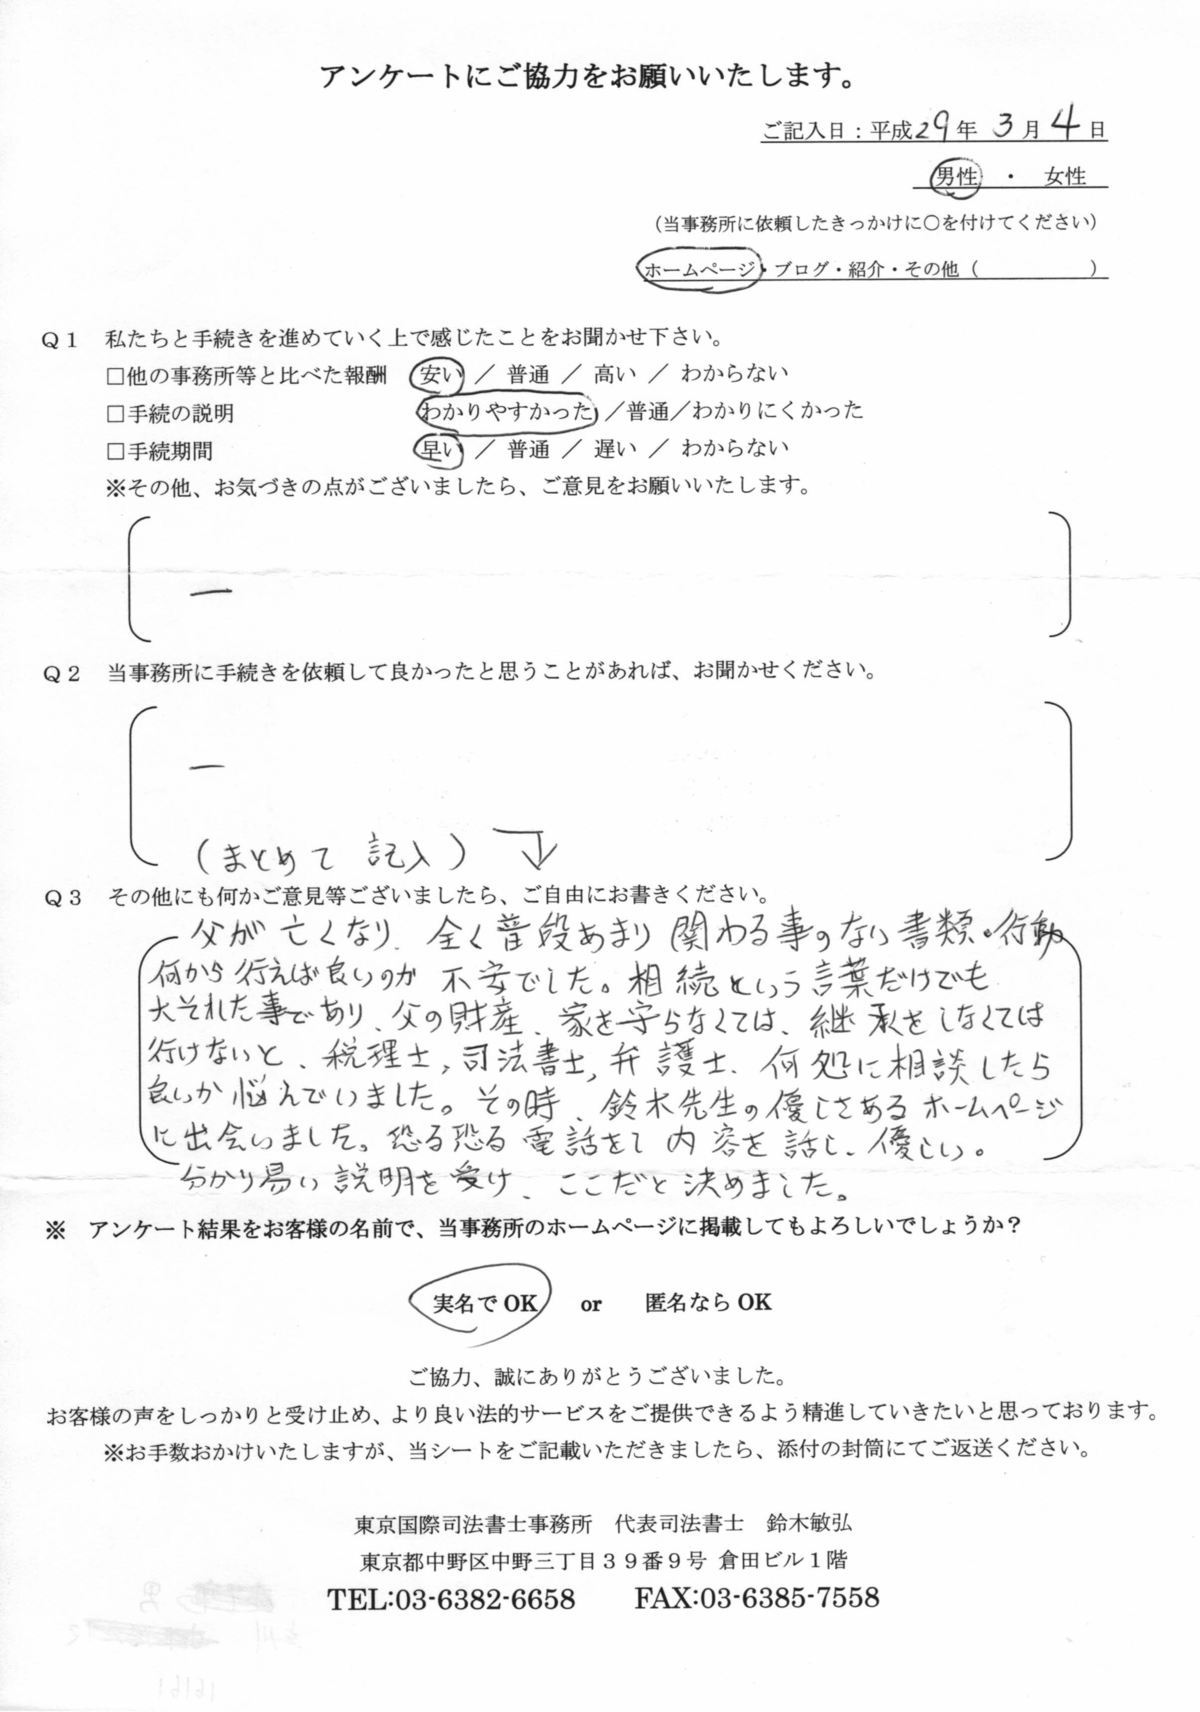 アンケートにご協力をお願いいたします。
ご記入日：平成29年 3月 4日
男性 ・ 女性
（当事務所に依頼したきっかけに○を付けてください）
ホームページ・ブログ・紹介・その他（　　　　　）
Q１　私たちと手続きを進めていく上で感じたことをお聞かせ下さい。
□他の事務所等と比べた報酬　安い ／ 普通 ／ 高い ／ わからない
□手続の説明　わかりやすかった ／普通／わかりにくかった
□手続期間　早い ／ 普通 ／ 遅い ／ わからない
※その他、お気づきの点がございましたら、ご意見をお願いいたします。
ー
Q２　当事務所に手続きを依頼して良かったと思うことがあれば、お聞かせください。
ー
（まとめて 記入）
Q３　その他にも何かご意見等ございましたら、ご自由にお書きください。
父が亡くなり、全く普段あまり関わる事のない書類・行動
何から行えば良いのか 不安でした。相続という言葉だけでも
大それた事であり、父の財産、家を守らなくては、継承をしなくては
行けないと、税理士,司法書士,弁護士、何処に相談したら
良いか悩んでいました。その時、鈴木先生の優しさあるホームページ
に出会いました。恐る恐る電話をし内容を話し、優しい。
分かり易い説明を受け、ここだと決めました。
※　アンケート結果をお客様の名前で、当事務所のホームページに掲載してもよろしいでしょうか？
実名でOK　or　匿名ならOK
ご協力、誠にありがとうございました。
お客様の声をしっかりと受け止め、より良い法的サービスをご提供できるよう精進していきたいと思っております。
※お手数おかけいたしますが、当シートをご記載いただきましたら、添付の封筒にてご返送ください。
東京国際司法書士事務所　代表司法書士　鈴木敏弘
東京都中野区中野三丁目３９番９号 倉田ビル１階
TEL:03-6382-6658　FAX:03-6385-7558